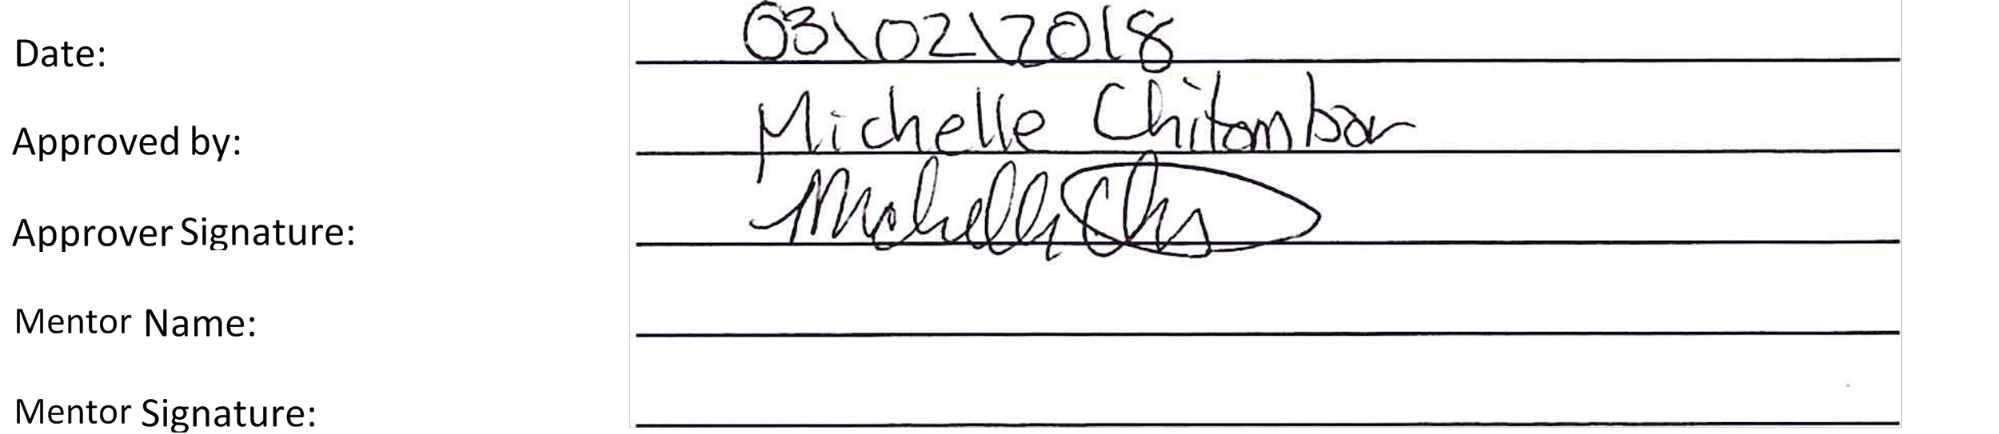 Date: 03\02\2018
Approved by: Michelle Chitombar
Approver Signature: Michelle
Mentor Name:
Mentor Signature: